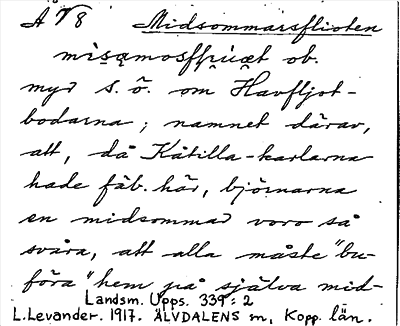 A V 8 Midsommarsflioten
misąmosfflɩuət ob.
myr s. ö. om Havfljot-
bodarna; namnet därav,
att, då Kåtilla-karlarna
hade fäb. här, björnarna
en midsommar voro så
svåra, att alla måste "bu-
föra" hem på själva mid-
Landsm. Upps. 339:2
L.Levander. 1917. ÄLVDALENS m, Kopp. län.